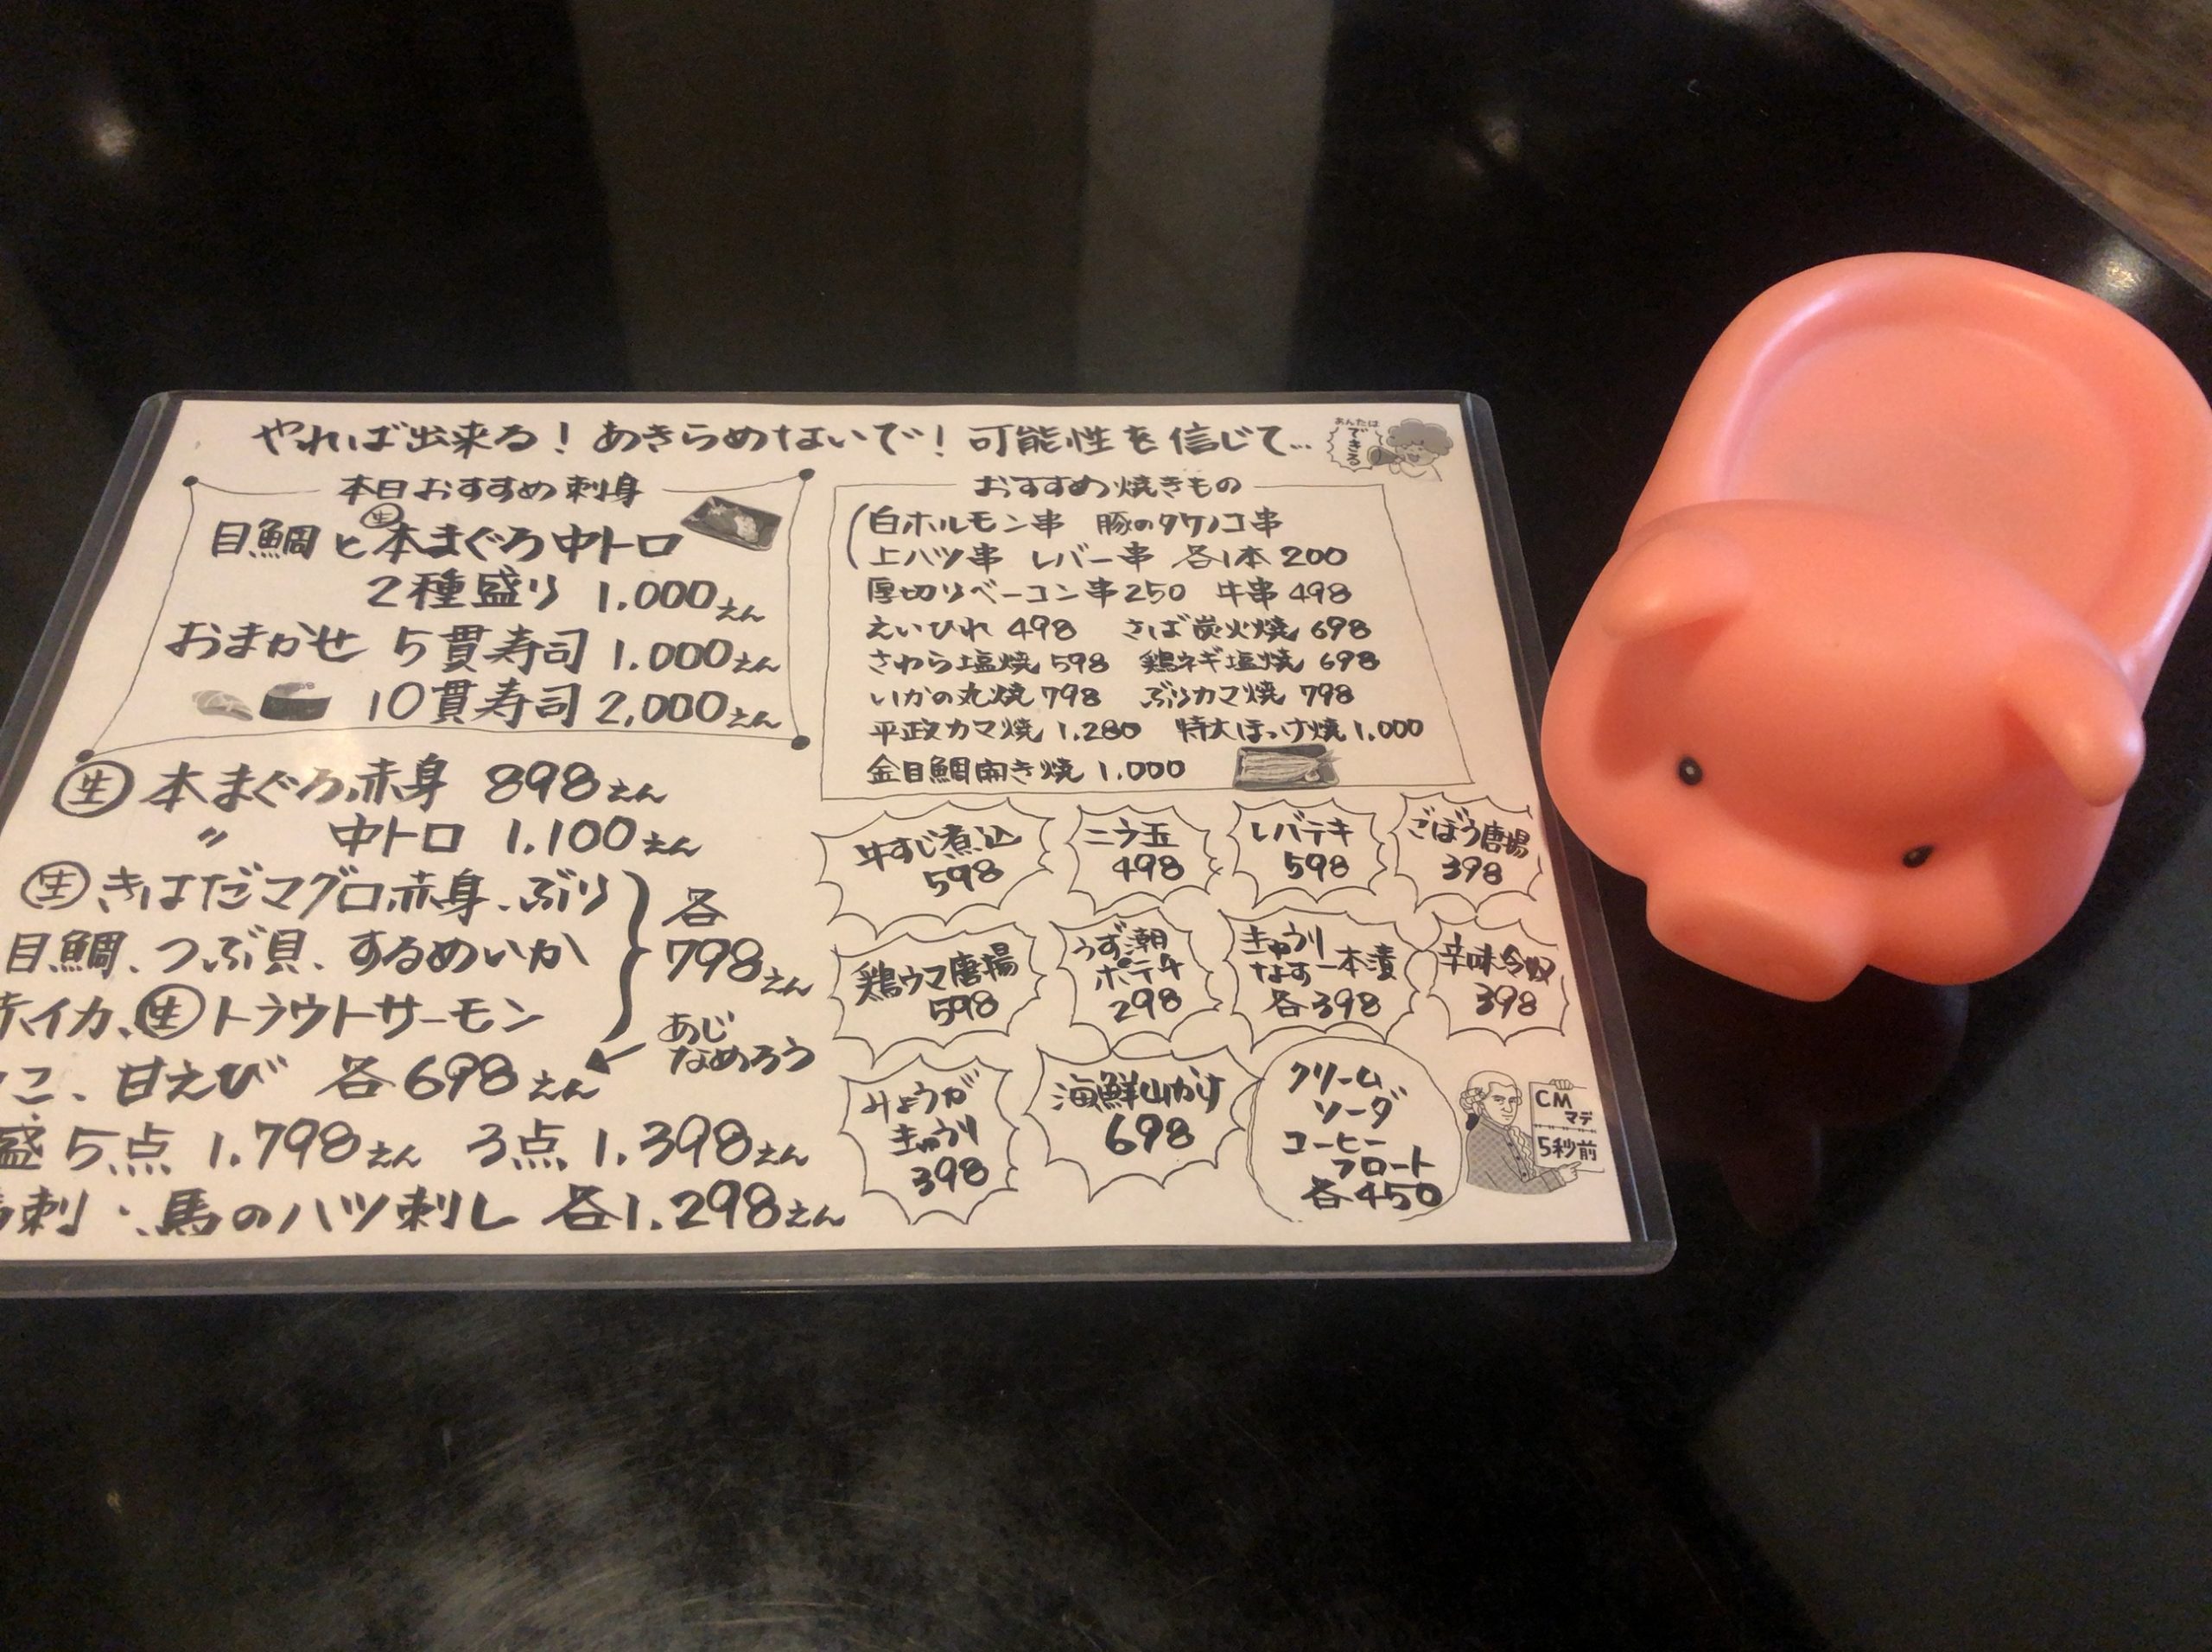 やれば出来る！あきらめないで！可能性を信じて…
あんたは
できる
本日おすすめ刺身
目鯛と生本まぐろ中トロ
2種盛り 1.000えん
おまかせ 5貫寿司 1.000えん
10貫寿司 2,000えん
生 本まぐろ赤身 898えん
〃 中トロ 1.100えん
生 きはだマグロ赤身、ぶり
目鯛、つぶ貝、するめいか
赤イカ、生トラウトサーモン
各
798えん
あじ
なめろう
こ、甘えび 各698えん
盛 5点 1.798えん 3点 1.398えん
刺・馬のハツ刺し 各1.298えん
おすすめ焼きもの
白ホルモン串 豚のタケノコ串
上ハツ串 レバー串 各1本 200
厚切りベーコン串 250 牛串 498
えいひれ 498 さば炭火焼 698
さわら塩焼 598 鶏ネギ塩焼 698
いかの丸焼 798 ぶりカマ焼 798
平政カマ焼 1.280 特大ほっけ焼 1.000
金目鯛開き焼 1.000
牛すじ煮込
598
ニラ玉
498
レバテキ
598
ごぼう唐揚
398
鶏ウマ唐揚
598
うず潮
ポテチ
298
きゅうり
なす一本漬
各398
辛味冷奴
398
みょうが
きゅうり
398
海鮮山かけ
698
クリーム
ソーダ
コーヒー
フロート
各450
CM
マデ
5秒前